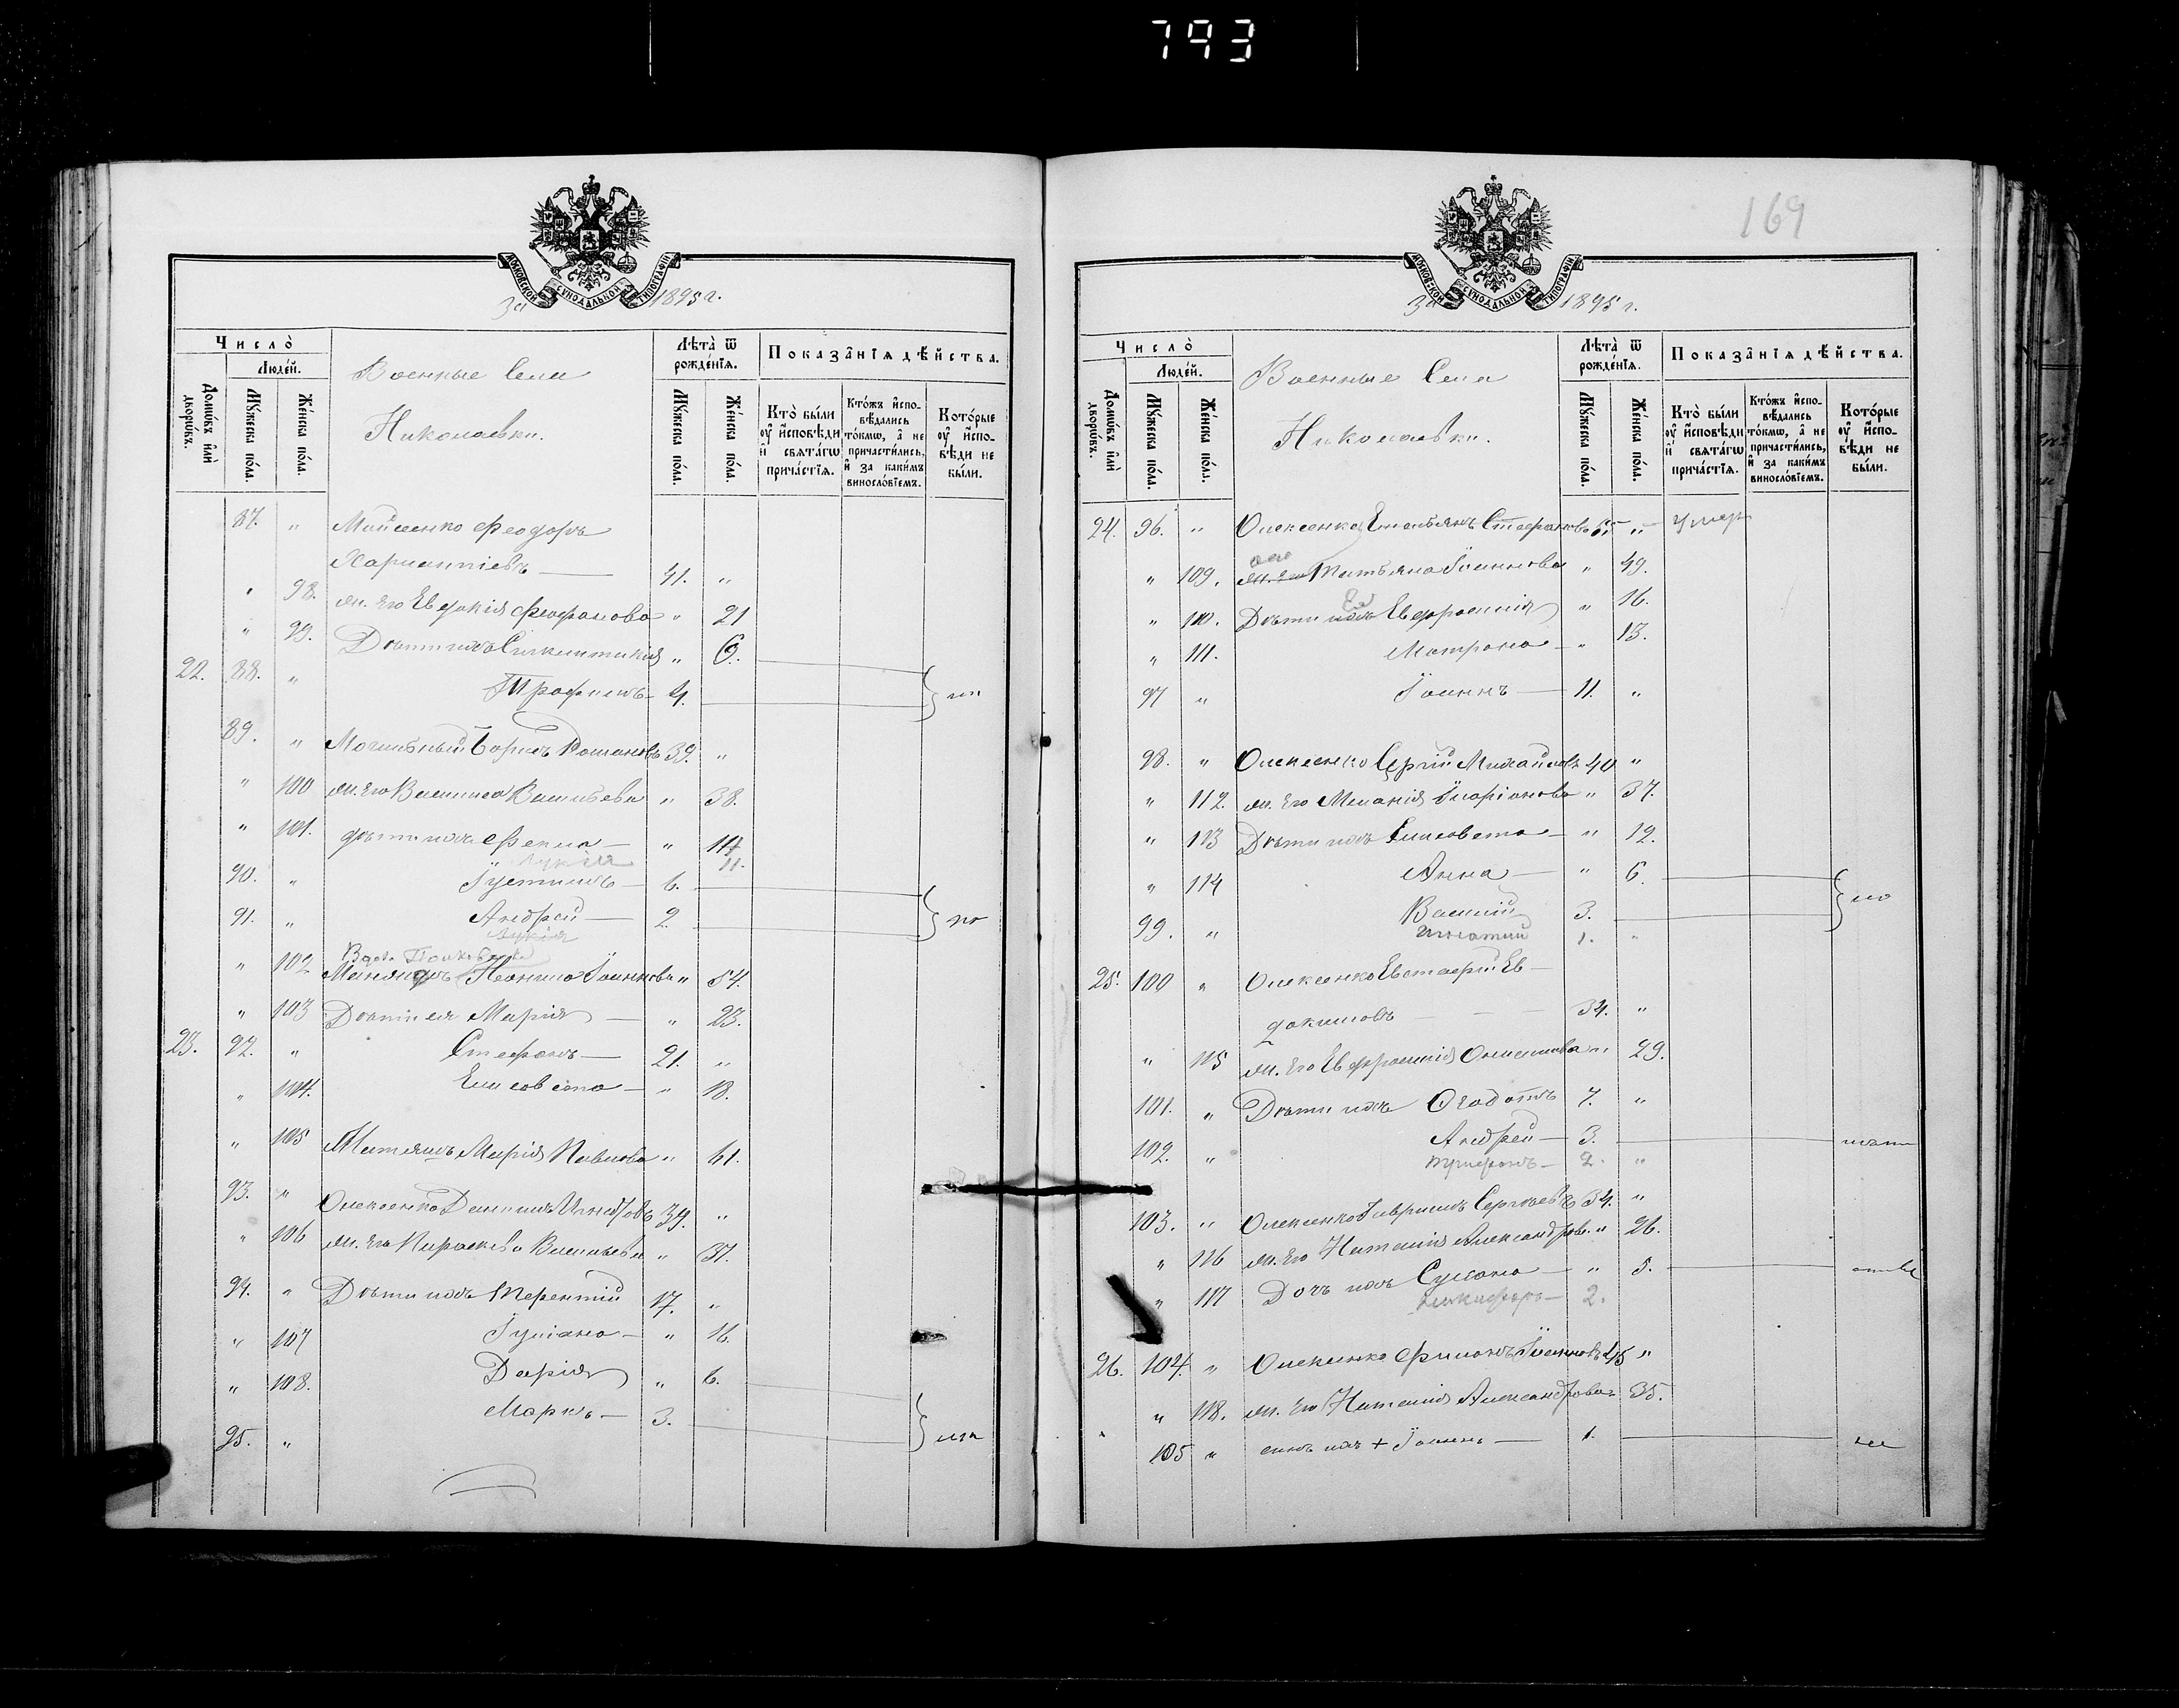 793
МОСКОВСКОЙ СѴНОДАЛЬНОЙ ТИПОГРАФІИ
За 1895 г.
Число̀
Люде́й.
Домѡ́въ и҆лѝ дворѡ́въ.
Мꙋ́жеска по́ла.
Же́нска по́ла.
Военные Села
Николаевки.
Лѣ́та ѿ рожде́нїѧ.
Мꙋ́жеска по́ла.
Же́нска по́ла.
Показа̑нїѧ дѣ́йства.
Кто̀ бы́ли ᲂу҆ и҆́сповѣди и҆ свѧта́гѡ прича́стїѧ.
Кто́жъ и҆спо­вѣ́дались то́кмѡ, а҆ не причасти́лись, и҆ за каки́мъ виносло́вїемъ.
Кото́рые ᲂу҆ и҆́спо­вѣди не бы́ли.
87. " Мойсеенко Феодоръ
Харлампіевъ — 41. "
" 98. ж. его Евдокія Феофанова " 21
" 99. Дѣти ихъ Сигклитикія " 6.
22. 88. " Трофимъ 4.
89. " Могильный Борисъ Романовъ 39. "
" 100 ж. его Василиса Васильева " 38.
" 101. дѣти ихъ Фекла — " 14
Лукія 11.
90. " Густинъ — 6.
91. " Андрей — 2.
Лукія
Вдова
" 102 Неонила Іоаннова " 54.
" 103 Дѣти ея Марія — " 23.
23. 92. " Стефанъ — 21. "
" 104. Елисавета — " 18.
" 105 Марія Павлова " 61.
93. " Олексенко Даніилъ 39. "
" 106 ж. его Параскева Васильева " 37.
94. " Дѣти ихъ Терентій 17. "
" 107 Іуліана — " 16.
" 108. Дарія " 6.
95. " Маркъ — 3.
169
МОСКОВСКОЙ СѴНОДАЛЬНОЙ ТИПОГРАФІИ
За 1895 г.
Число̀
Люде́й.
Домѡ́въ и҆лѝ дворѡ́въ.
Мꙋ́жеска по́ла.
Же́нска по́ла.
Военные Села
Николаевки.
Лѣ́та ѿ рожде́нїѧ.
Мꙋ́жеска по́ла.
Же́нска по́ла.
Показа̑нїѧ дѣ́йства.
Кто̀ бы́ли ᲂу҆ и҆́сповѣди и҆ свѧта́гѡ прича́стїѧ.
Кто́жъ и҆спо­вѣ́дались то́кмѡ, а҆ не причасти́лись, и҆ за каки́мъ виносло́вїемъ.
Кото́рые ᲂу҆ и҆́спо­вѣди не бы́ли.
24. 96. " Олексенко Емельянъ Стефановъ 65 " умер
" 109. ж. его Татьяна Іоаннова " 49.
" 110. Дѣти ихъ Евфросинія " 16.
" 111. Матрона — " 13.
97 " Іоаннъ — 11. "
98. " Олексенко Сергій Михайловъ 40 "
" 112. ж. его Меланія Иларіонова " 37.
" 113 Дѣти ихъ Елисавета — " 12.
" 114 Анна — " 6.
99. " Василій 3.
Игнатий 1. "
25. 100 " Олексенко Евстафій Ев-
докимовъ — — — 34. "
" 115 ж. его Евфросинія Онисимова " 29.
101. " Дѣти ихъ Ѳеодотъ 7. "
102. " Андрей — 3.
Трифонъ — 2. "
103. " Олексенко Гавріилъ Сергѣевъ 34. "
" 116 ж. его Наталія Александров. " 26.
" 117 Дочь ихъ Сусана — " 5.
Никифоръ — 2.
26. 104. " Олексенко Филиппъ Іоанновъ 45 "
" 118. ж. его Наталія Александрова " 35.
105 " сынъ ихъ + Іоаннъ — 1.